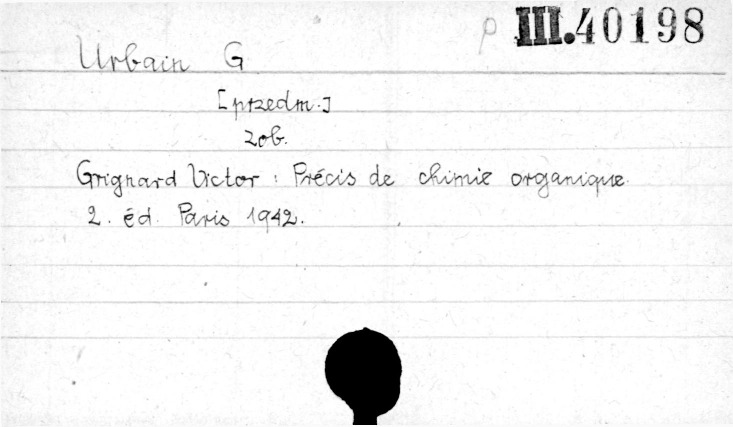 p III.40198
Urbain G
[przedm.]
zob.
Grignard Victor : Précis de chimie organique.
2. éd. Paris 1942.